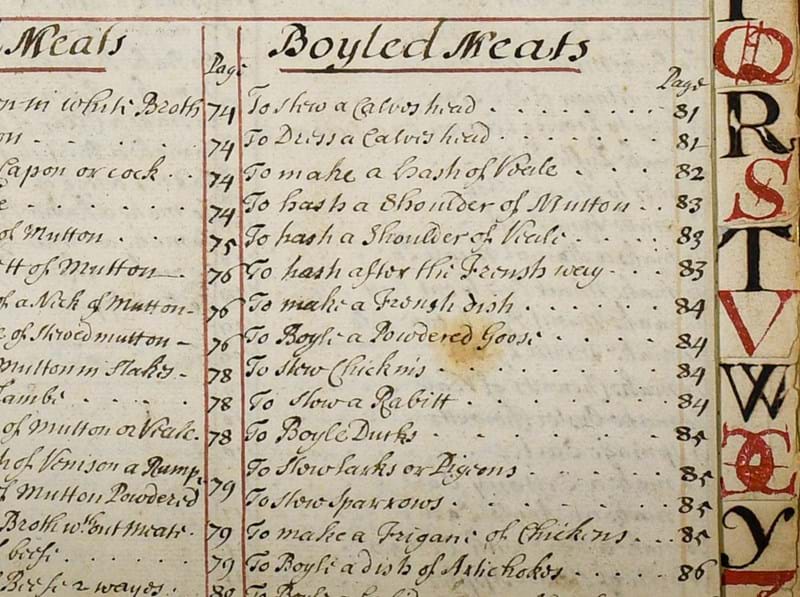 Meats
Page
in white Broth 74
74
Capon or cock 74
74
of Mutton 75
of Mutton 76
of a Nick of Mutton 76
of stewed mutton 76
Mutton in stakes 78
Lambe 78
of Mutton or Veale 78
of Venison a Rump
of Mutton Powdered 79
Broth without meate 79
beefe 79
Beefe 2 wayes 80
Boyled Meats
Page
To stew a Calves head 81
To Dress a Calves head 82
To make a hash of Veale 82
To hash a Shoulder of Mutton 83
To hash a Shoulder of Veale 83
To hash after the Frensh way 83
To make a Frensh dish 84
To Boyle a Powdered Goose 84
To stew Chickins 84
To stew a Rabitt 84
To Boyle Ducks 85
To stew larks or Pigeons 85
To stew sparrows 85
To make a Frigane of Chickens 85
To Boyle a dish of Artichokes 86
Q
R
S
T
V
W
X
y